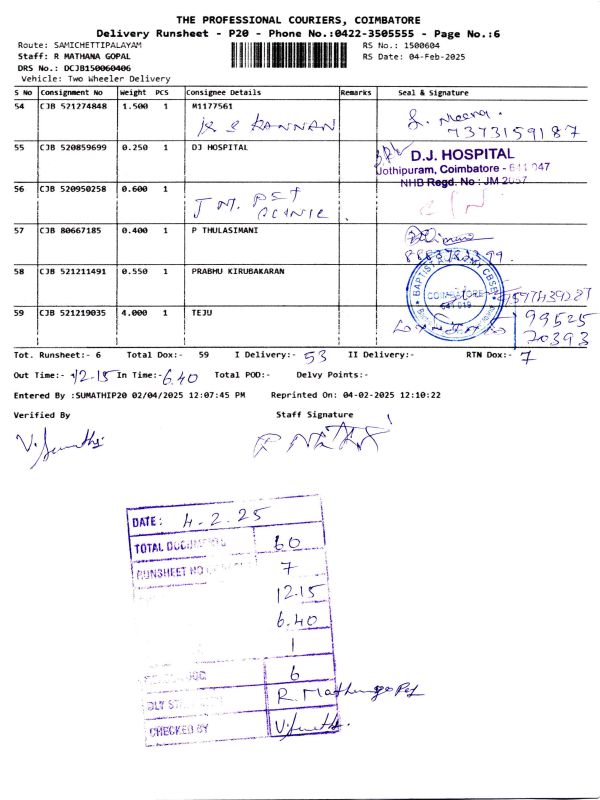 THE PROFESSIONAL COURIERS, COIMBATORE
Delivery Runsheet - P20 - Phone No.:0422-3505555 - Page No.:6
Route: SAMICHETTIPALAYAM
RS No.: 1500604
Staff: R MATHANA GOPAL
RS Date: 04-Feb-2025
DRS No.: DCJB150060406
Vehicle: Two Wheeler Delivery
S No Consignment No Weight PCS Consignee Details Remarks Seal & Signature
54 CJB 521274848 1.500 1 M1177561
K S KANNAN
7373159187
55 CJB 520859699 0.250 1 DJ HOSPITAL
D.J. HOSPITAL
Jothipuram, Coimbatore - 641 047
NHB Regd. No : JM 2057
56 CJB 520950258 0.600 1
PET
CLINIC
57 CJB 80667185 0.400 1 P THULASIMANI
58 CJB 521211491 0.550 1 PRABHU KIRUBAKARAN
COIMBATORE
641 019
59 CJB 521219035 4.000 1 TEJU
99525
70393
Tot. Runsheet:- 6 Total Dox:- 59 I Delivery:- 53 II Delivery:- RTN Dox:- 7
Out Time:- 12-15 In Time:- 6.40 Total POD:- Delvy Points:-
Entered By :SUMATHIP20 02/04/2025 12:07:45 PM Reprinted On: 04-02-2025 12:10:22
Verified By Staff Signature
V. Sumathi
DATE: 4.2.25
TOTAL DOCUMENTS 60
RUNSHEET NO 7
12.15
6.40
1
6
R. Mathanagopal
CHECKED BY V. Sumathi